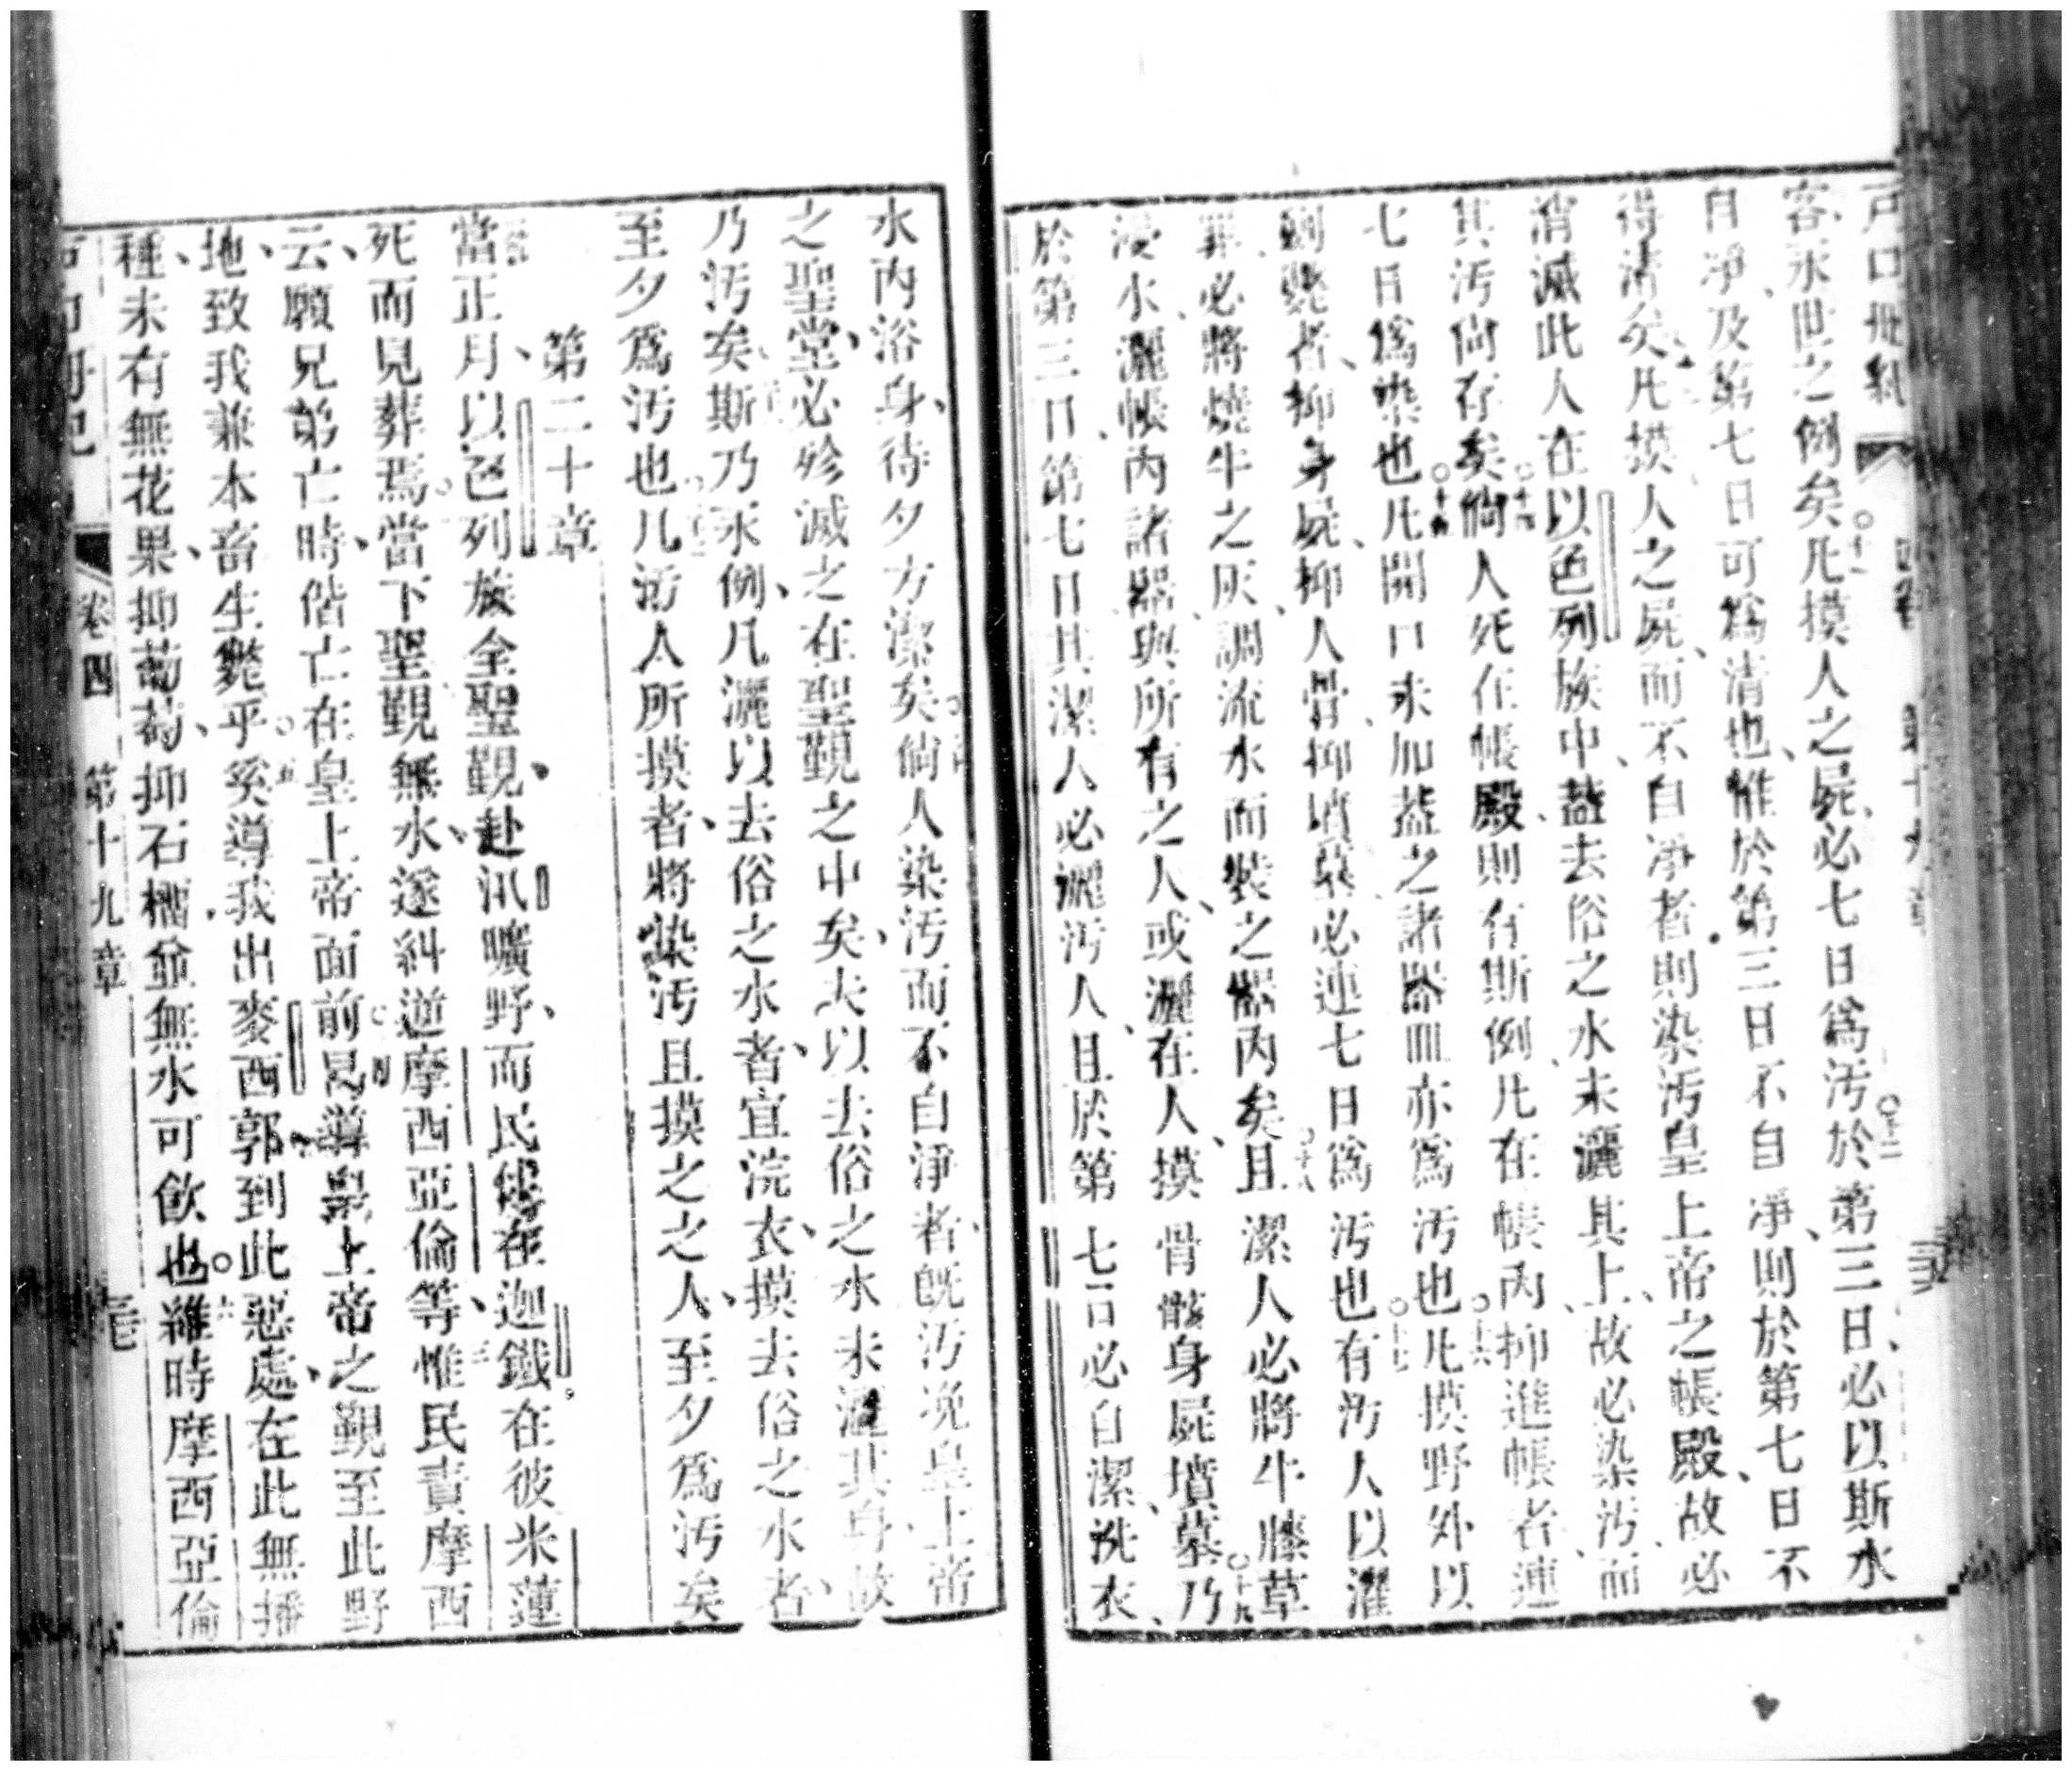 戶口册紀 四卷 第十九章
客永世之例矣○十一凡摸人之屍必七日爲汚○十二於第三日必以斯水
自淨及第七日可爲清也惟於第三日不自淨則於第七日不
得清矣凡摸人之屍而不自淨者則染汚皇上帝之帳殿故必
消滅此人在以色列族中蓋去俗之水未灑其上故必染汚而
其汚尚存矣○十四倘人死在帳殿則有斯例凡在帳內抑進帳者連
七日爲染也○十五凡開口未加蓋之諸器皿亦爲汚也○十六凡摸野外以
劍斃者抑身屍抑人骨抑墳墓必連七日爲汚也○十七有汚人以濯
罪必將燒牛之灰調流水而裝之器內矣○十八且潔人必將牛膝草
浸水灑帳內諸器與所有之人或灑在人摸骨骸身屍墳墓○十九乃
於第三日第七日其潔人必灑汚人且於第七日必自潔洗衣
水內浴身待夕方潔矣倘人染汚而不自淨者旣汚壞皇上帝
之聖堂必殄滅之在聖覲之中矣夫以去俗之水未灑其身故
乃汚矣斯乃永例凡灑以去俗之水者宜浣衣摸去俗之水者
至夕爲汚也凡汚人所摸者將染汚且摸之之人至夕爲汚矣
第二十章
當正月以色列族全聖覲赴汛曠野而民停在迦鐵在彼米蓮
死而見葬焉當下聖覲無水遂糾逆摩西亞倫等惟民責摩西
云願兄弟亡時偕亡在皇上帝面前○四曷導皇上帝之覲至此野
地致我兼本畜生斃乎○五奚導我出麥西郭到此惡處在此無播
種未有無花果抑葡萄抑石榴並無水可飲也○六維時摩西亞倫
戶口册紀 卷四 第十九章